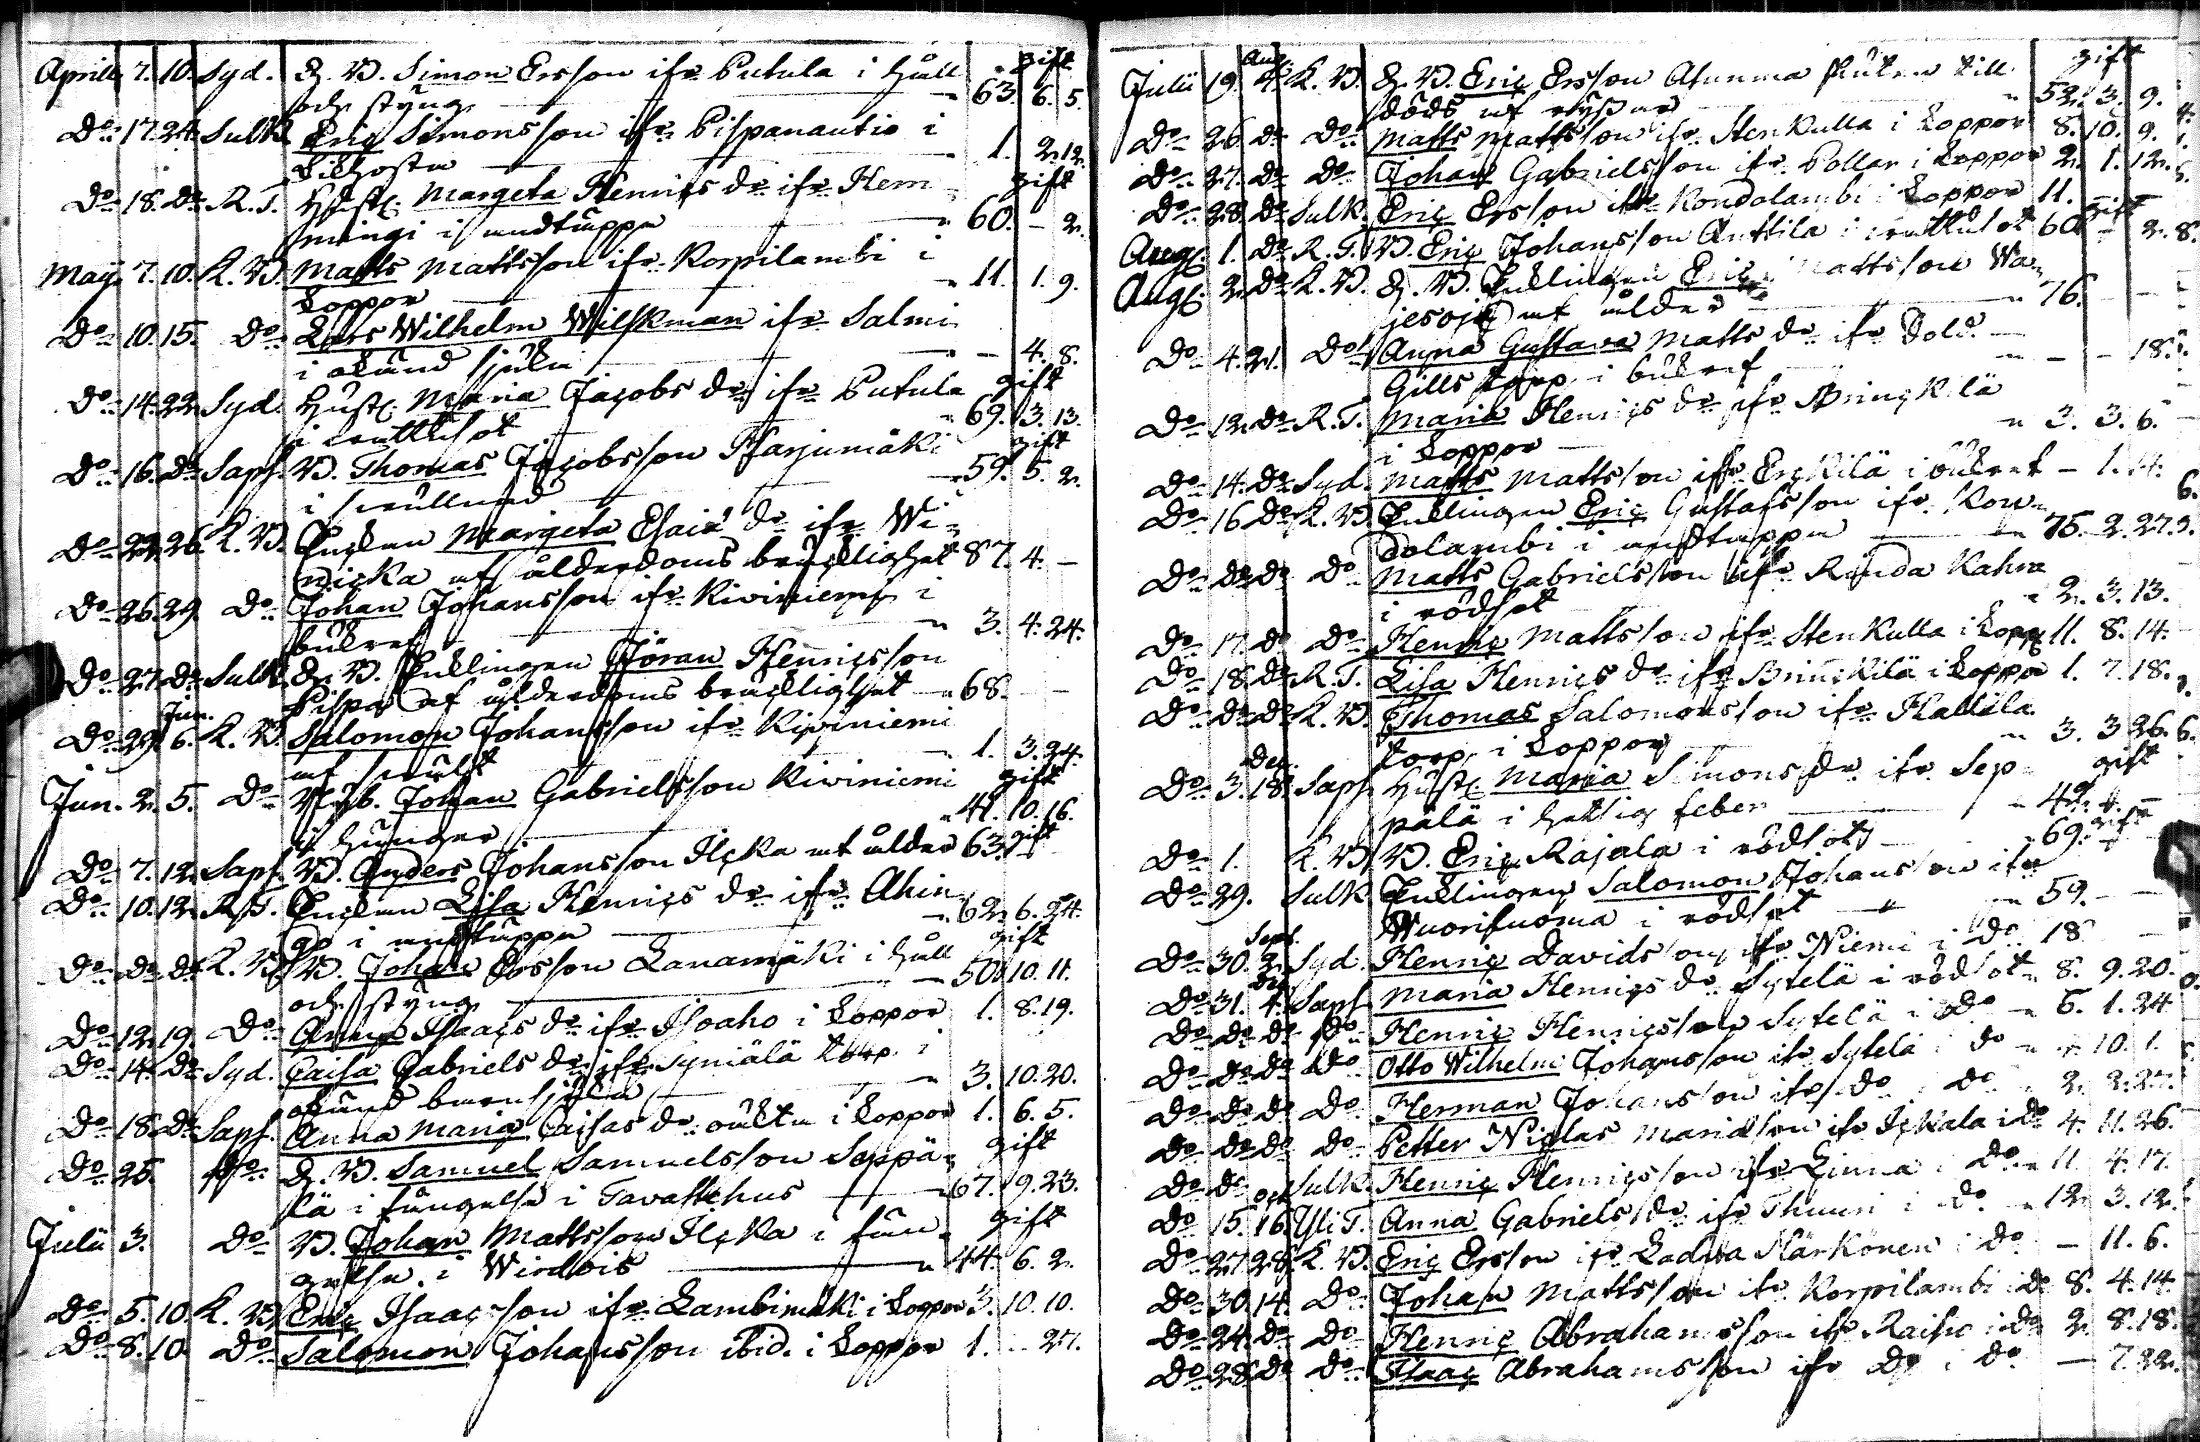 Aprill 7. 10. Syd. E. B. Simon Ersson ifr. Putula i håll gift
och styng 63. 6. 5.
Do 17. 24. Sulk. Eric Simonsson ifr. Pispanautio i
kikhosta 1. 2. 12.
Do 18. Do R. T. Hust. Margeta Henrics dr ifr. Hem- gift
mingi i andtäppa 60. - 2.
Maji 7. 10. K. B. Matts Mattsson ifr. Korpilambi i
koppor 11. 1. 9.
Do 10. 15. Do Lars Wilhelm Wilskman ifr. Salmi
i okänd sjuka - 4. 8.
Do 14. 22. Syd. Hust. Maria Jacobs dr ifr. Putula gift
i brättsot 69. 3. 13.
Do 16. Do Saps. B. Thomas Jacobsson Harjumäki gift
i svullnad 59. 5. 2.
Do 22. 26. K. B. Enkan Margeta Esaiæ dr ifr. Wi-
nicka af ålderdoms bräcklighet 87. 4. -
Do 26. 29. Do Johan Johansson ifr. Kiviniemi i
bukref 3. 4. 24.
Do 27. Do Sulk. E. B. Enklingen Jöran Henricsson
Pispa af ålderdoms bräcklighet 68. - -
Jun.
Do 29. 6. K. B. Salomon Johansson ifr. Kiviniemi
af svulst 1. 3. 24.
Jun. 2. 5. Do Johan Gabrielsson Kiviniemi gift
i hunger 41. 10. 16.
Do 7. 12. Saps. B. Anders Johansson Ilcka af ålder 63. gift
Do 10. 12. R. T. Enkan Lisa Henrics dr ifr. Ahin-
go i andtäppa 62. 6. 24.
Do Do Do K. B. B. Johan Ersson Lanamäki i håll gift
och styng 50. 10. 11.
Do 12. 19. Do Anna Isaacs dr ifr. Isoaho i koppor 1. 8. 19.
Do 14. Do Syd. Caisa Gabriels dr ifr. Syniälä torp i
okänd barnsjuka 3. 10. 20.
Do 18. Do Saps. Anna Maria Caisas dr oäkta i koppor 1. 6. 5.
Do 25. Do E. B. Samuel Samuelsson Seppä- gift
lä i fängelse i Tavastehus 67. 9. 23.
Julii 3. Do B. Johan Mattsson Ilcka i fän- gift
gelse i Wirdois 44. 6. 2.
Do 5. 10. K. B. Eric Isaacsson ifr. Lambimäki i koppor 3. 10. 10.
Do 8. 10. Do Salomon Johansson ibid. i koppor 1. - 27.
Aug.
Julii 19. 4. K. B. E. B. Eric Ersson Alanna skuten till gift
döds af ryssar 52. 3. 9.
Do 26. Do Do Matts Mattsson ifr. Stenkulla i koppor 8. 10. 9.
Do 27. Do Do Johan Gabrielsson ifr. Pollari i koppor 2. 1. 12.
Do 28. Do Sulk. Eric Ersson ifr. Kondolambi i koppor 11. -
Aug. 1. Do R. T. B. Eric Johansson Anttila i brättsot 60. - 2. gift
Aug. 2. Do K. B. E. B. Enklingen Eric Mattsson Wa-
jesoja af ålder 76. - -
Do 4. 21. Do Anna Gustava Matts dr ifr. Sold.
Gills torp i bukref - - 18.
Do 12. Do R. T. Maria Henrics dr ifr. Brinckilä
i koppor 3. 3. 6.
Do 14. Do Syd. Matts Mattsson ifr. Erckilä i bukref - 1. 14.
Do 16. Do K. B. Enklingen Eric Gustafsson ifr. Kon-
dolambi i andtäppa 75. 2. 27.
Do Do Do Do Matts Gabrielsson ifr. Rinda Kahra
i rödsot 2. 3. 13.
Do 17. Do Do Henric Mattsson ifr. Stenkulla i kopp. 11. 8. 14.
Do 18. Do R. T. Lisa Henrics dr ifr. Brinckilä i koppor 1. 7. 18.
Do Do Do K. B. Thomas Salomonsson ifr. Hallila
torp i koppor 3. 3. 26.
Do 3. 18. Saps. Hust. Maria Simons dr ifr. Sep- gift
pälä i hetsig feber 42.
Do 1. K. B. B. Eric Rajala i rödsot 69. gift
Do 29. Sulk. Enklingen Salomon Johansson ifr.
Wuorisuoma i rödsot 59. -
Sept.
Do 30. 2. Syd. Henric Davidsson ifr. Niemi i Do 18
Do 31. 4. Saps. Maria Henrics dr Sytelä i rödsot 8. 9. 20.
Do Do Do Do Henric Henricsson Sytelä i Do 6. 1. 24
Do Do Do Do Otto Wilhelm Johansson ifr. Sytelä i do - 10. 1.
Do Do Do Do Herman Johansson ifr. Do Do 2. 2. 27.
Do Do Do Do Petter Niclas Mariasson ifr. Ickala i Do 4. 11. 26.
Do Do Sulk. Henric Henricsson ifr. Linna i Do 11. 4. 17.
Do 15. 16. Yli T. Anna Gabriels dr ifr. Thuuri i Do 12. 3. 12.
Do 27. 28. K. B. Eric Ersson ifr. Ladwa Härkönen i Do - 11. 6.
Do 30. 14. Do Johan Mattsson ifr. Korpilambi i Do 8. 4. 14.
Do 24. Do Do Henric Abrahamsson ifr. Raiho i Do 2. 8. 18.
Do 28. Do Do Isaac Abrahamsson ifr. Do i Do - 7. 22.